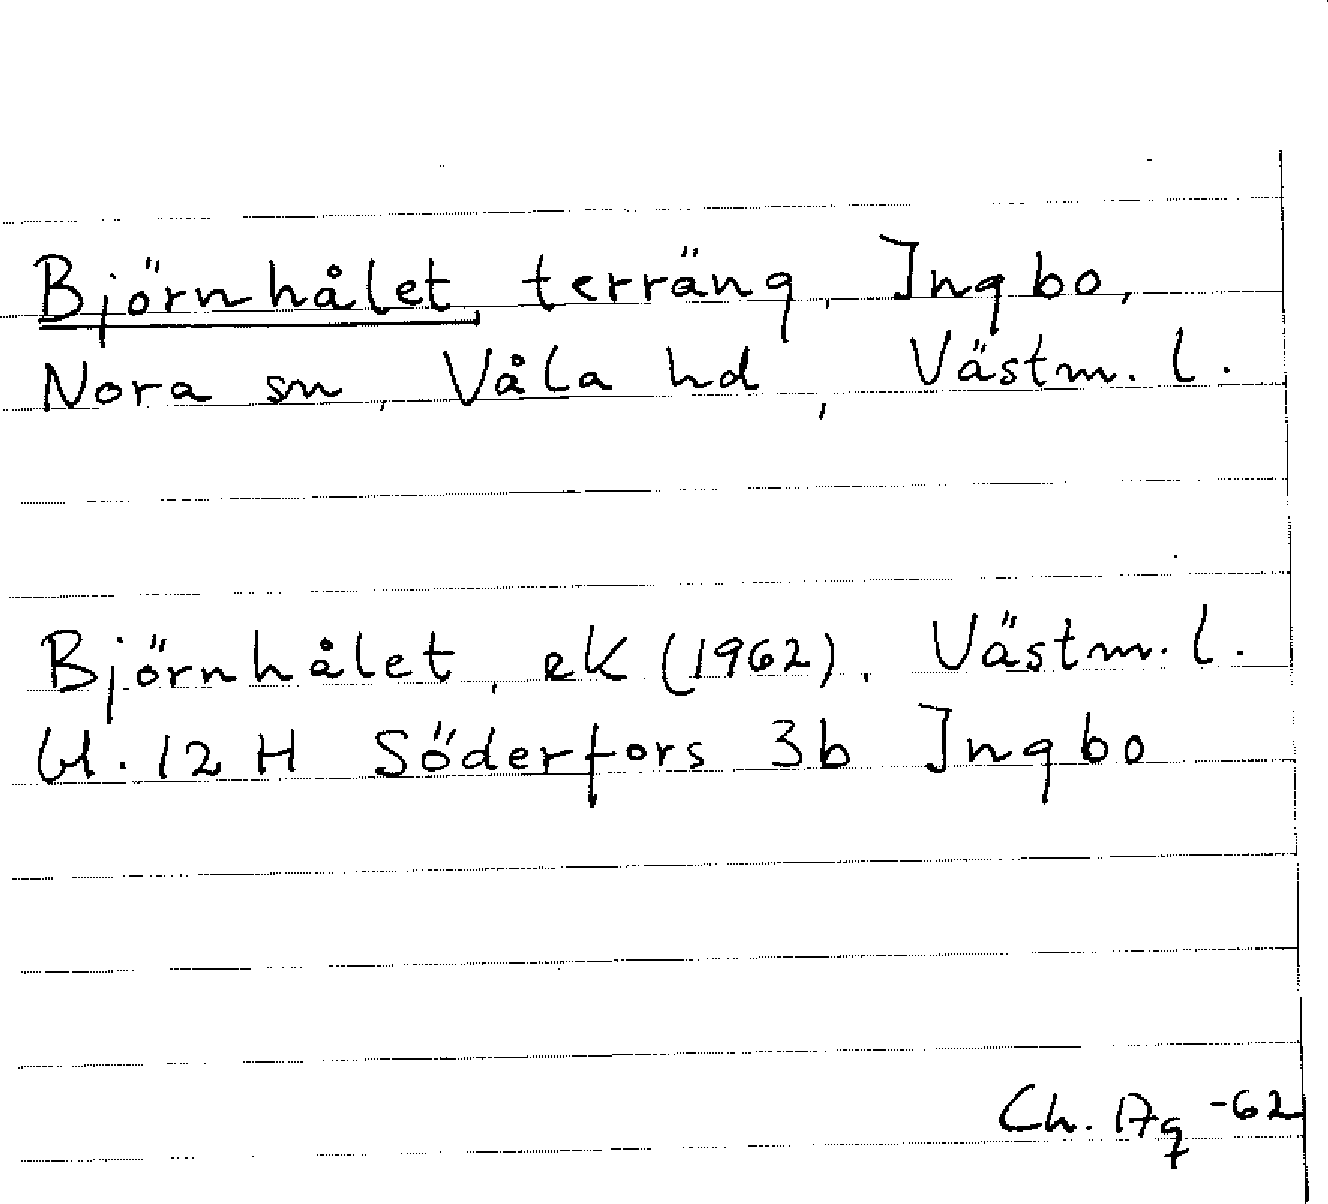 Björnhålet, terräng, Ingbo,
Nora sn, Våla hd, Västm. l.
Björnhålet, ek (1962). Västm. l.
bl. 12 H Söderfors 3b Ingbo
Ch. Ag -62